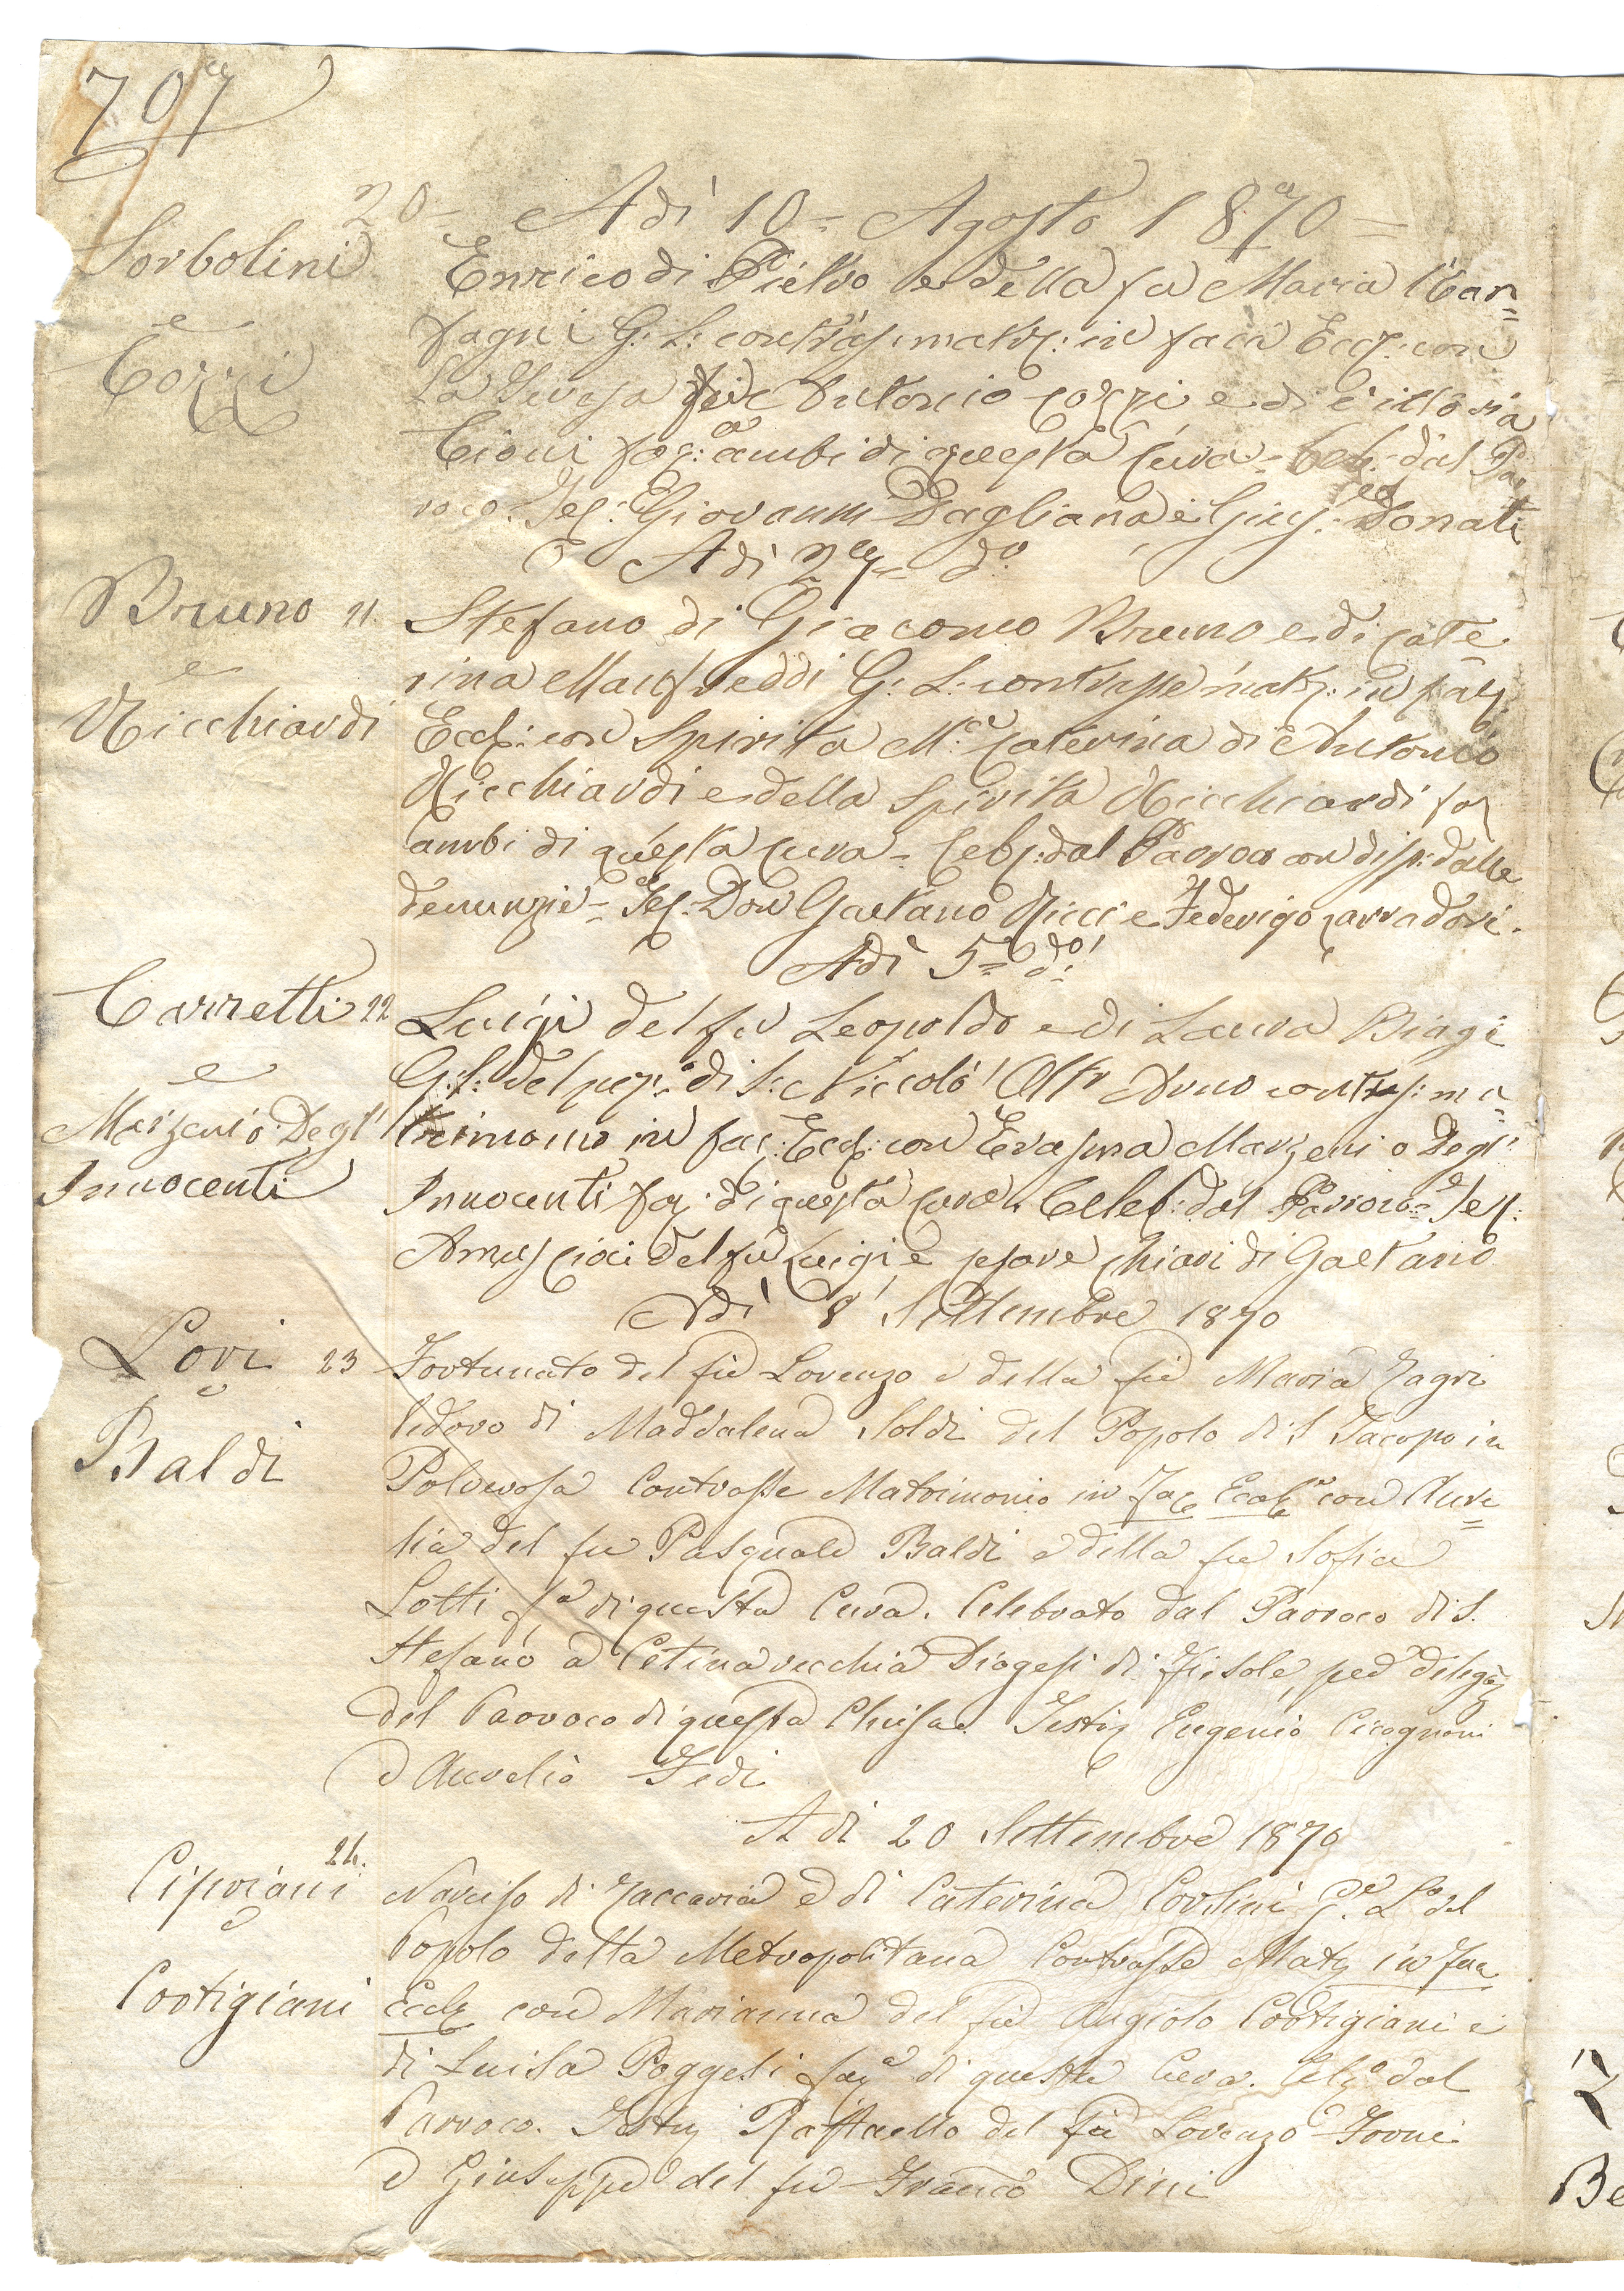 707
20 = Adì 10 = Agosto 1870 =
Sorbolini
Enrico di Pietro e della fu Maria Car=
e
fagni G: L: contras: matr: in faci Eccl: con
Cozzi
La Teresa di Antonio Cozzi e di Vittoria
Cioni fag: ambi di questa Cura = Celeb: dal Par
roco. Tes: Giovanni Dagliana e Gius: Donati
Adì 27 = do
Bruno 21. Stefano di Giacomo Bruno e di Cate
e
rina Manfreddi G: L: contrasse matr: in fac:
Ricchiardi Eccl: con Spirita Ma Caterina di Antonio
Ricchiardi e della Spirita Ricchiardi fa
ambi di questa Cura = Celeb: dal Parroco con disp: dalle
denunzie = Tes: Don Gaetano Ricci e Federigo Carradori.
Adì 5 = do:
Carretti 22 Luigi del fu Leopoldo e di Laura Biagi
e
G: L: del pop: di S: Niccolò Oltr Arno contras: ma=
Marzeni o Degl' trimonio in fac: Eccl: con Erasma Marzeni o Degl'
Innocenti Innocenti fa: di questa Cura. Celeb: dal Parroco = Tes:
del fu Luigi e Cesare Chiari di Gaetano
Adì 8 Settembre 1870
Lori 23 Fortunato del fu Lorenzo e della fu Maria Zagri
e
Vedovo di Maddalena Soldi del Popolo di S Jacopo in
Baldi
Polverosa Contrasse Matrimonio in Fac Eccle con Aure=
lia del fu Pasquale Baldi e della fu Sofia
Lotti fa di questa Cura. Celebrato dal Parroco di S.
Stefano a Cetinavecchia Diogesi di Fiesole, per deleg
del Parroco di questa Chiesa. Testi Eugenio Cicognani
e Aurelio Fedi
A dì 20 Settembre 1870
24.
Cipriani Narciso di Zaccaria e di Caterina Corsini Ge. Lo del
e
Popolo della Metropolitana Contrasse Mat in Fac
Cortigiani Eccle con Marianna del fu Angiolo Cortigiani e
di Luisa Poggesi fag di questa Cura. Cele dal
Parroco. Testi Raffaello del fu Lorenzo Forni
e Giuseppe del fu Franco Dini
Be